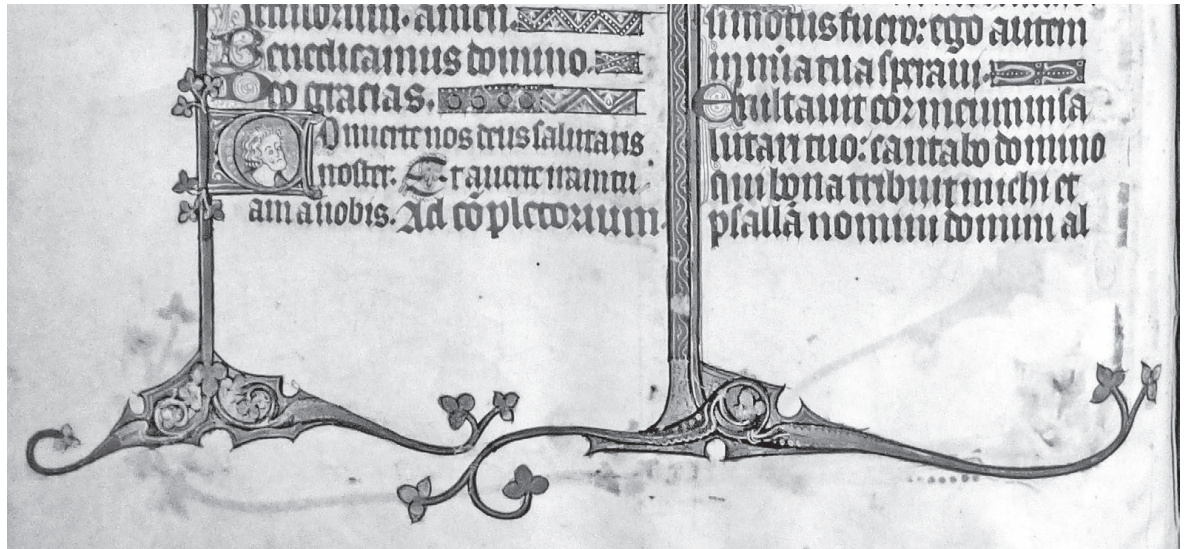 amen.
Benedicamus domino.
Deo gracias.
Conuerte nos deus salutaris
noster. Et auerte iram tu
am a nobis. Ad cōpletorium
si motus fuero: ego autem
in mīa tua speraui.
Exultauit cor meum in sa
lutari tuo: cantabo domino
qui bona tribuit michi et
psallā nomini domini al